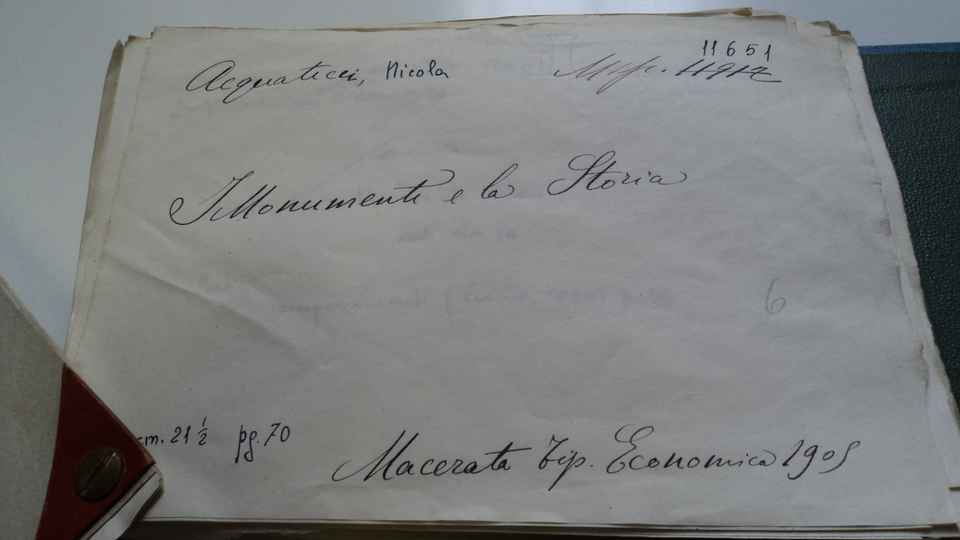 11651
Acquaticci, Nicola
I Monumenti e la Storia
6
cm. 21 ½ pg. 70
Macerata Tip. Economica 1905